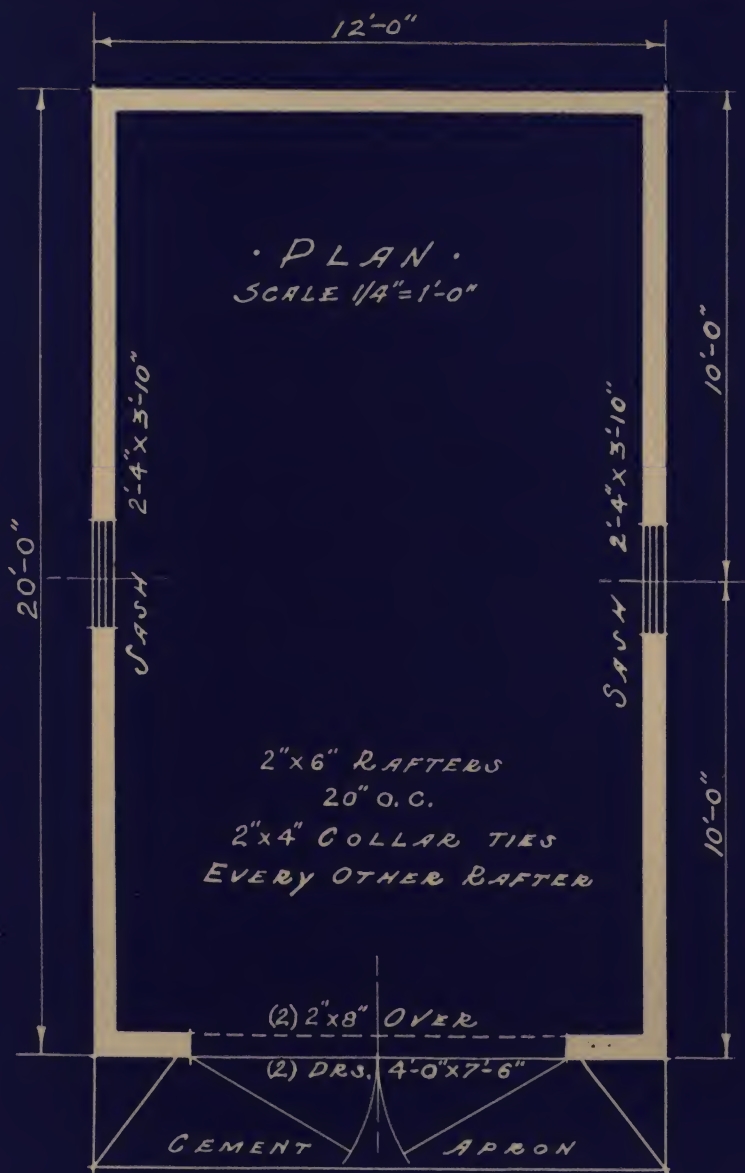 12'-0"
· PLAN ·
SCALE 1/4"=1'-0"
20'-0"
SASH 2'-4" X 3'-10"
SASH 2'-4" X 3'-10"
10'-0"
10'-0"
2"x6" RAFTERS
20" O.C.
2"x4" COLLAR TIES
EVERY OTHER RAFTER
(2) 2"x8" OVER
(2) DRS. 4'-0"x7'-6"
CEMENT APRON